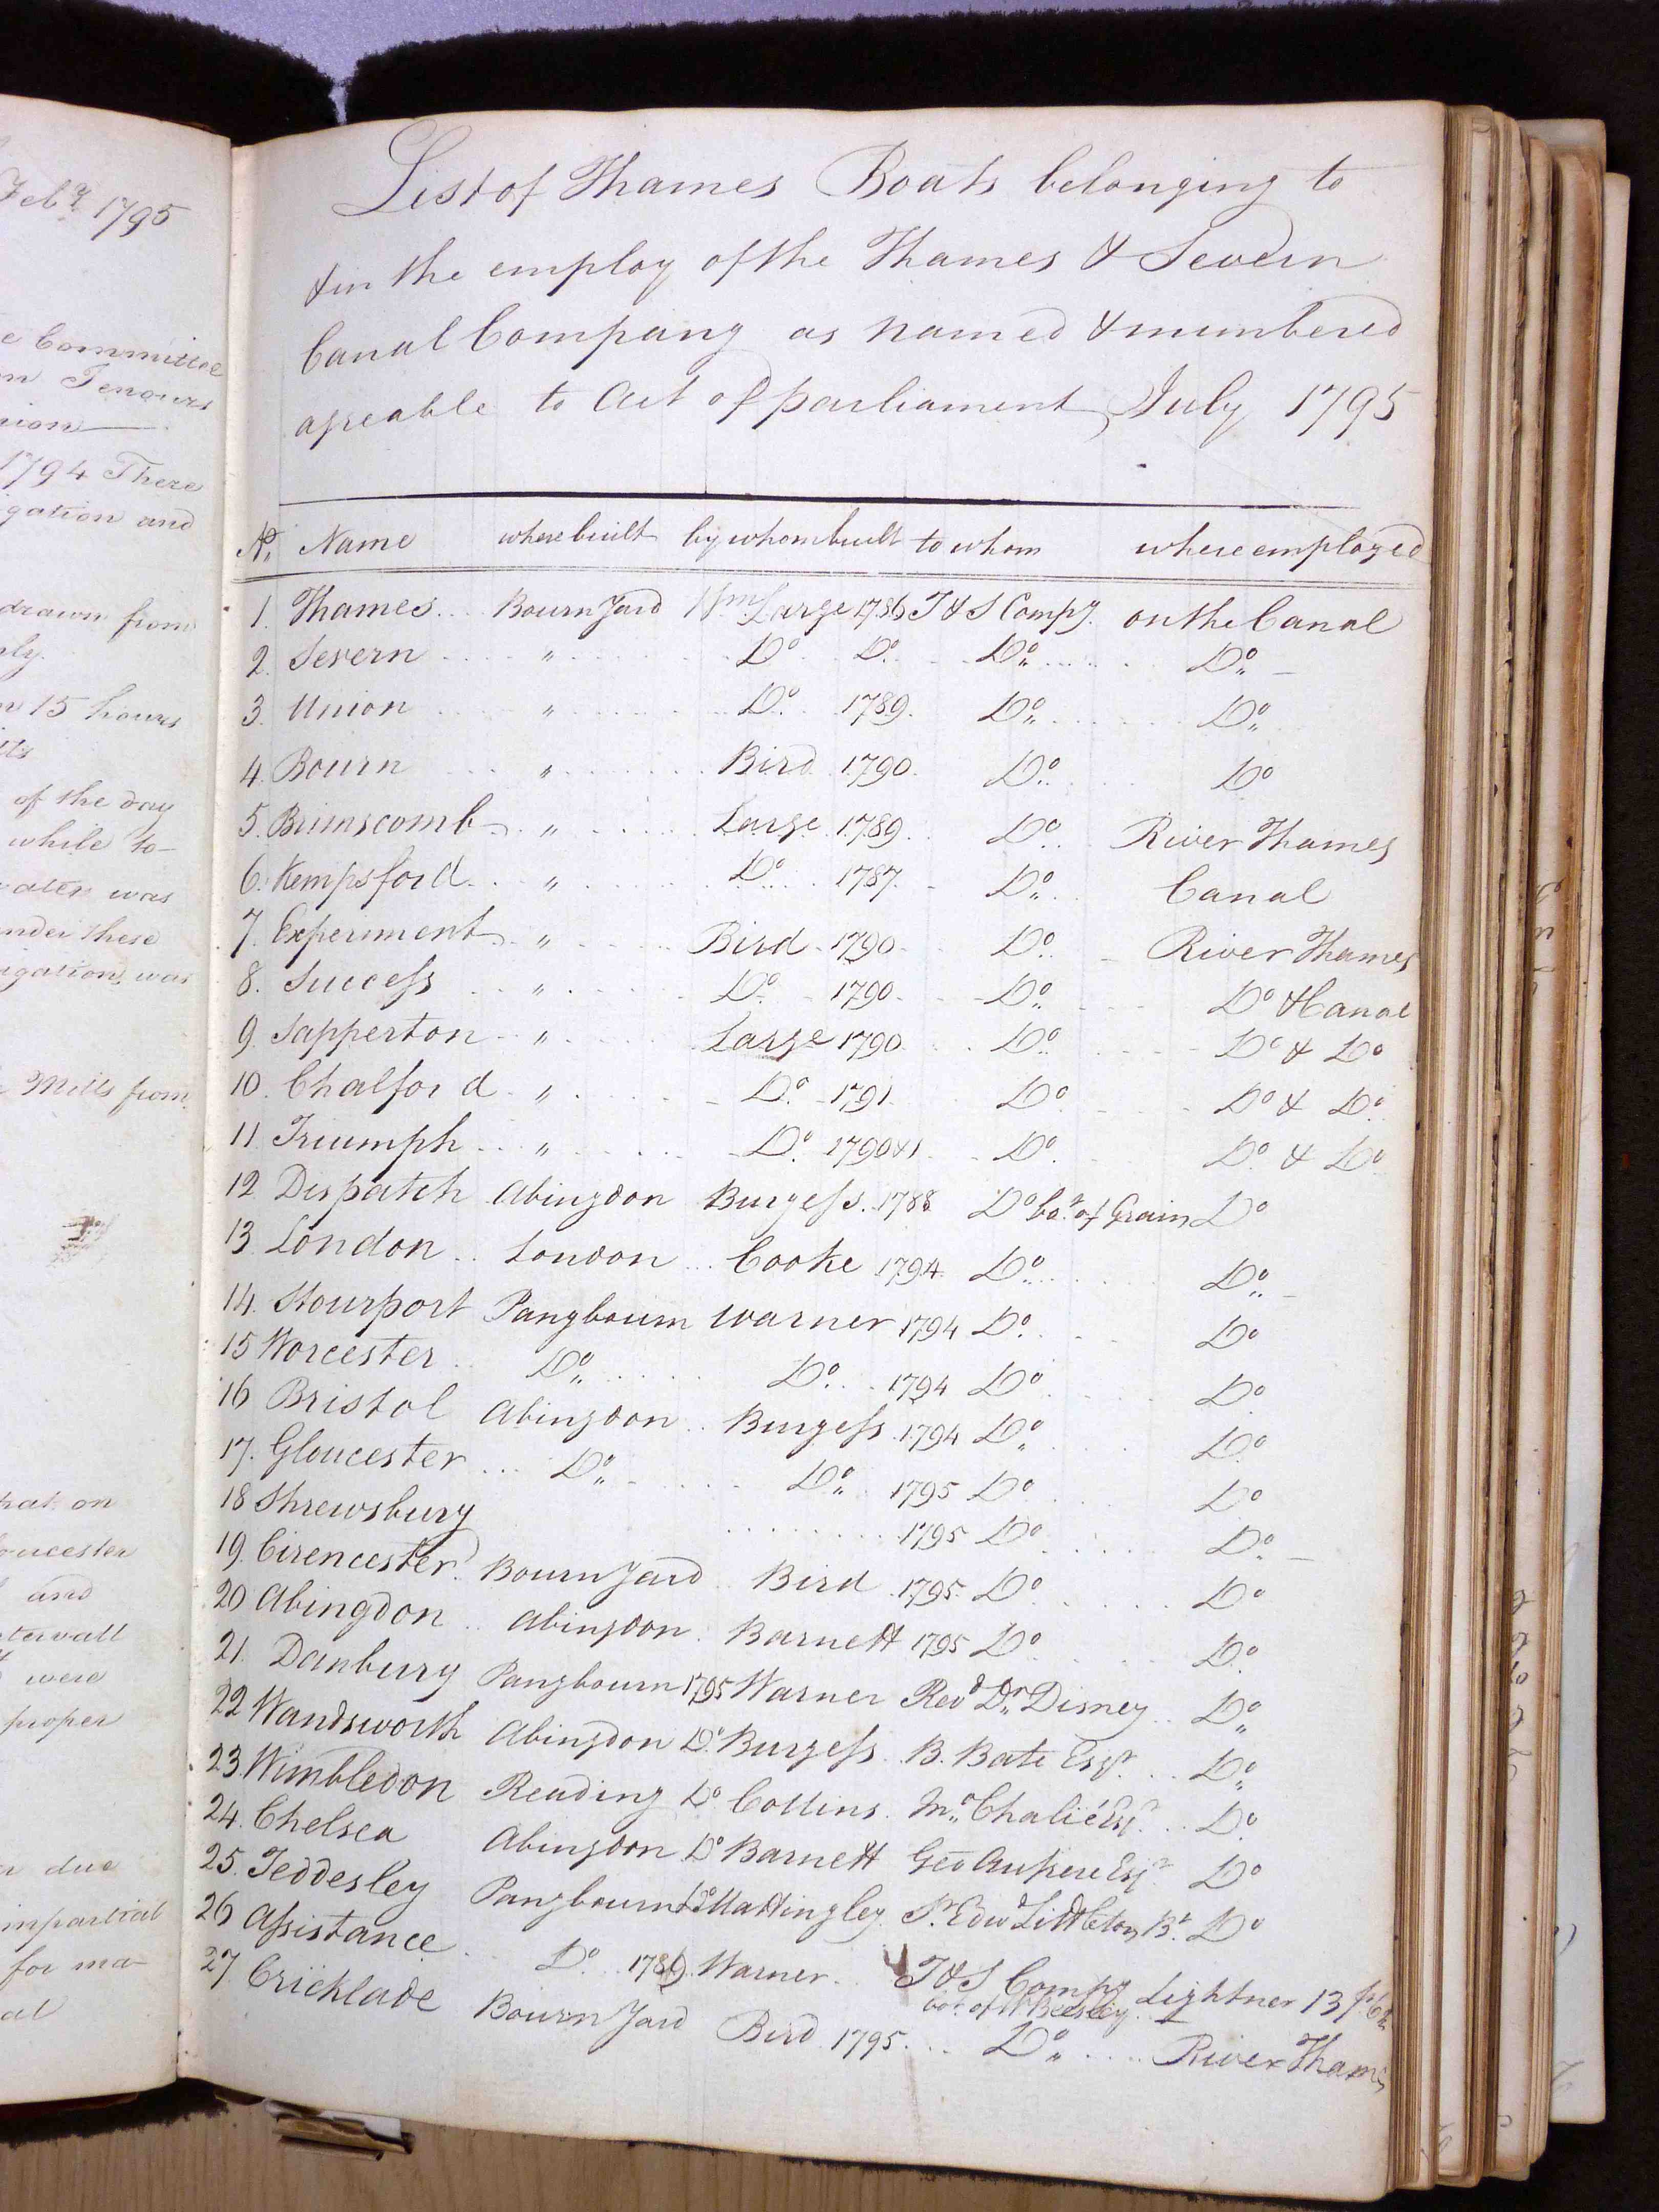 Feby 1795
e Committee
n Tenours
nion
1794 There
gation and
drawn from
nly.
n 15 hours
its
of the day
while to-
water was
under these
igation, was
e Mills from
hat on
oucester
and
tervall
were
proper
r due
impartial
for ma-
al
List of Thames Boats belonging to
& in the employ of the Thames & Severn
Canal Company as named & numbered
agreable to Act of parliament, July 1795
No. Name where built by whom built to whom where employed
1. Thames.. Bourn Yard Wm. Large 1786 T & S Compy. on the Canal
2. Severn " Do Do. Do. Do. -
3. Union " Do. 1789. Do. Do.
4. Bourn " Bird 1790. Do. Do
5. Brimscomb " Large 1789 Do. River Thames
6. Kempsford " Do. 1787. Do. Canal
7. Experiment " Bird 1790 Do. River Thames
8. Success " Do. 1790 Do. Do & Canal
9. Sapperton " Large 1790 Do. Do & Do
10. Chalford " Do. 1791 Do Do & Do.
11. Triumph " Do. 1790 & 1 Do. Do. & Do
12 Dispatch Abingdon Burgess. 1788 Do bot. of Grain Do
13. London London Cooke 1794 Do. Do. -
14. Stourport Pangbourn Warner 1794 Do. Do
15 Worcester Do. Do. 1794 Do. Do.
16 Bristol Abingdon Burgess 1794 Do. Do.
17. Gloucester Do. Do. 1795 Do. Do
18 Shrewsbury 1795 Do. Do. -
19. Cirencester Bourn Yard Bird 1795 Do. Do
20 Abingdon Abingdon. Barnett 1795 Do Do.
21. Danbury Pangbourn 1795 Warner Revd. Dr. Disney Do.
22 Wandsworth Abingdon Do. Burgess. B. Bate Esqr. Do.
23. Wimbledon Reading Do Collins. Chalié Esqr. Do.
24. Chelsea Abingdon Do Barnett Geo Aufrere Esqr Do
25. Teddesley Pangbourn Do Mattingley Sr. Edwd Littleton Bt. Do
26 Assistance Do. Warner T & S Compy Lightner 13
bot. of W Beesley
27 Cricklade Bourn Yard Bird 1795 Do. River Thames